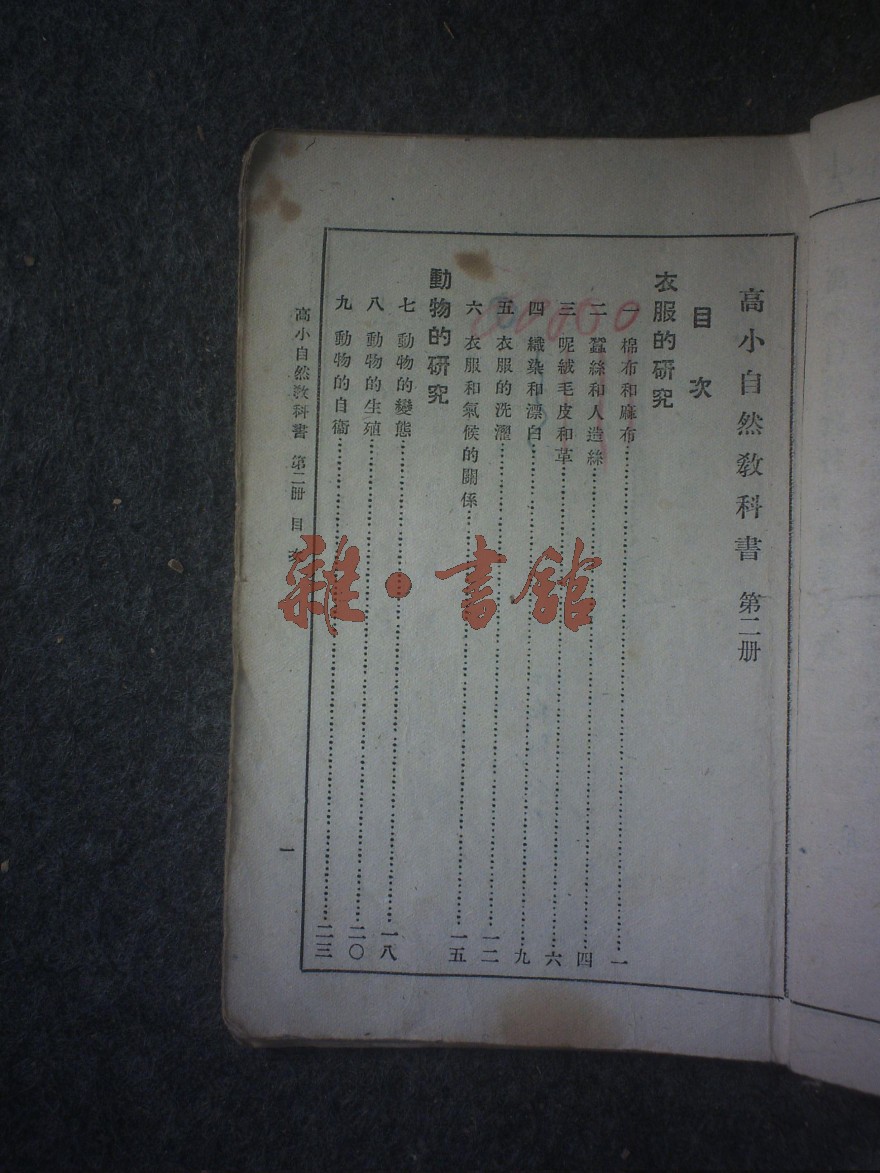 高小自然教科書 第二册
目次
衣服的研究
一 棉布和麻布……一
二 蠶絲和人造絲……四
三 呢絨毛皮和革……六
四 織染和漂白……九
五 衣服的洗濯……一二
六 衣服和氣候的關係……一五
動物的研究
七 動物的變態……一八
八 動物的生殖……二〇
九 動物的自衞……二三
高小自然教科書 第二册 目次
一
雜·書館